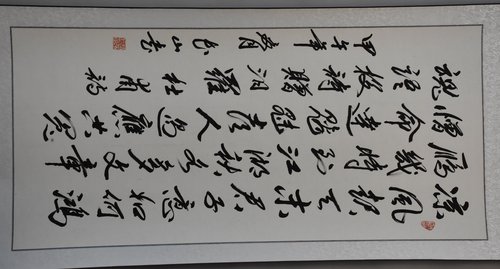 凉风起天末君子意如何鸿
雁几时到江湖秋水多文章
憎命达魑魅喜人过应共冤
魂语投诗赠汨罗杜甫诗
甲午年春月山书